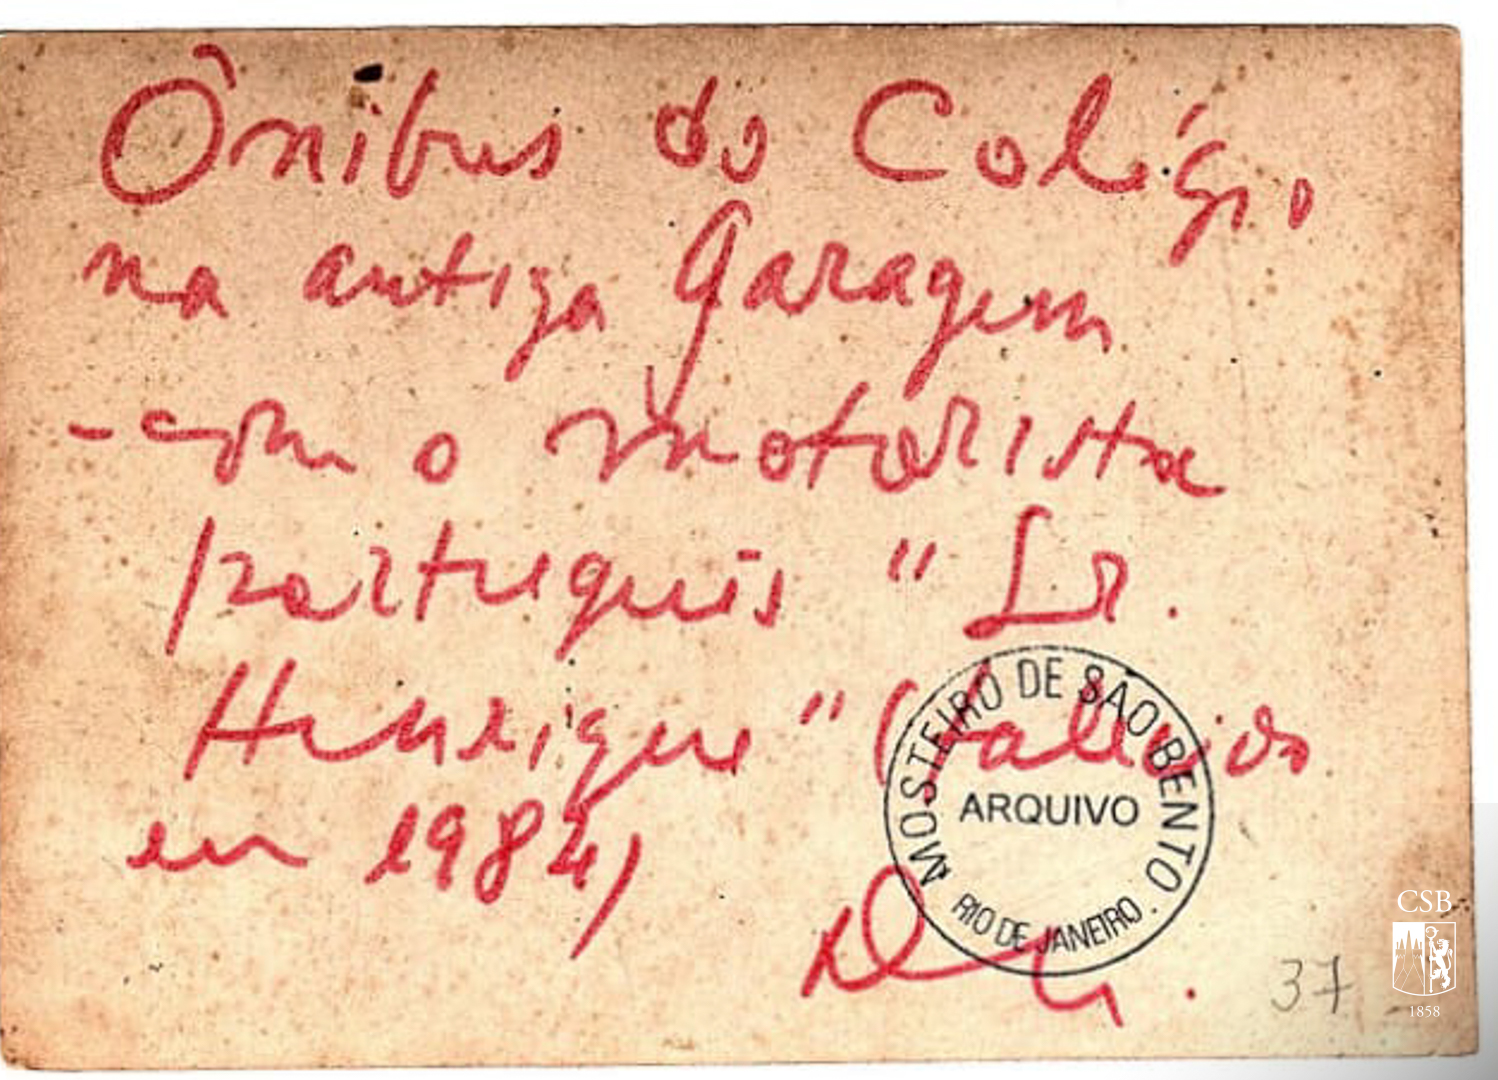 Ônibus do Colégio
na antiga garagem
- com o motorista
português "Sr.
Henrique" (falecido
em 1984)
MOSTEIRO DE SÃO BENTO
ARQUIVO
RIO DE JANEIRO.
37
CSB
1858